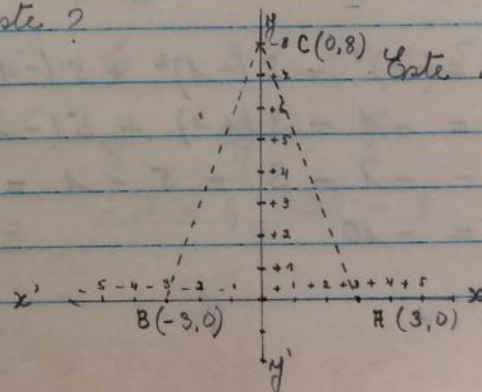 ste ?
y
- 8 C (0,8)
Este
+ 7
+ 6
+ 5
+ 4
+ 3
+ 2
+ 1
x' - 5 - 4 - 3 - 2 - 1 + 1 + 2 + 3 + 4 + 5 x
B (-3,0) A (3,0)
y'